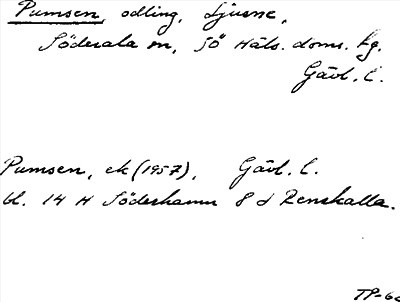 Pumsen, odling, Ljusne,
Söderala sn, SÖ Häls. doms. tg.
Gävl. l.
Pumsen, ek (1957), Gävl. l.
bl. 14 H Söderhamn 8 d Renskalla.
TP-60